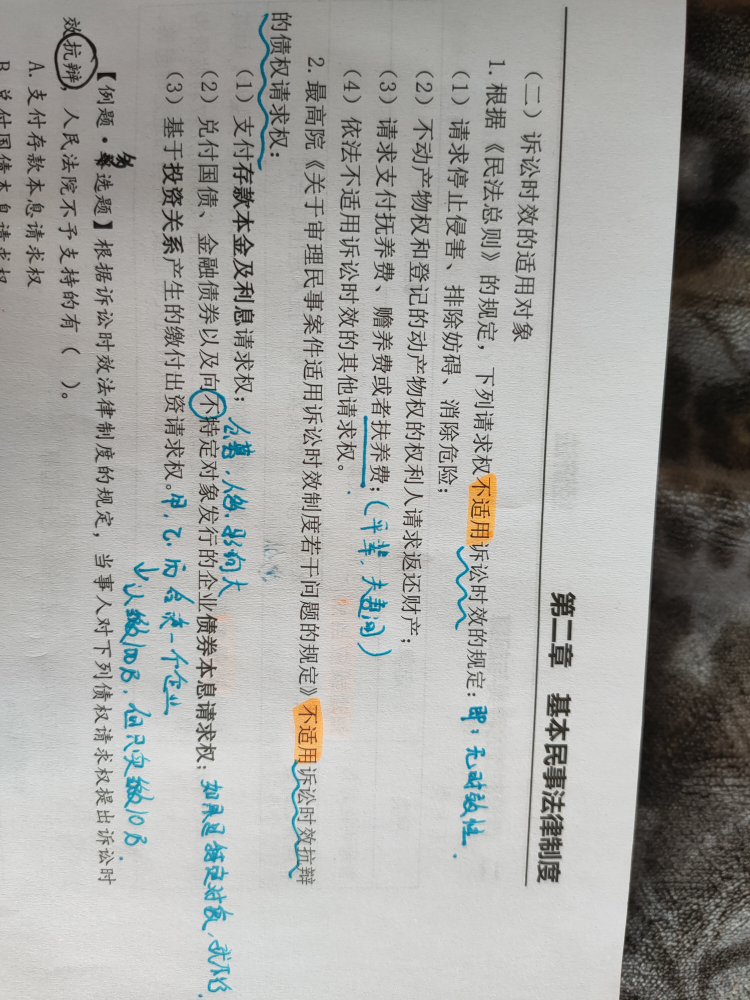 第二章 基本民事法律制度
（二）诉讼时效的适用对象
1. 根据《民法总则》的规定，下列请求权不适用诉讼时效的规定：即：无时效性.
（1）请求停止侵害、排除妨碍、消除危险；
（2）不动产物权和登记的动产物权的权利人请求返还财产；
（3）请求支付抚养费、赡养费或者扶养费；（平辈，夫妻间）
（4）依法不适用诉讼时效的其他请求权。
2. 最高院《关于审理民事案件适用诉讼时效制度若干问题的规定》不适用诉讼时效抗辩
的债权请求权：
（1）支付存款本金及利息请求权；公募，人多，影响大
（2）兑付国债、金融债券以及向不特定对象发行的企业债券本息请求权；如果是特定对象，就不行.
（3）基于投资关系产生的缴付出资请求权。甲、乙、丙合资一个企业
↓认缴100万，但只实缴10万.
【例题·多选题】根据诉讼时效法律制度的规定，当事人对下列债权请求权提出诉讼时
效抗辩，人民法院不予支持的有（ ）。
A. 支付存款本息请求权
B. 兑付国债本息请求权